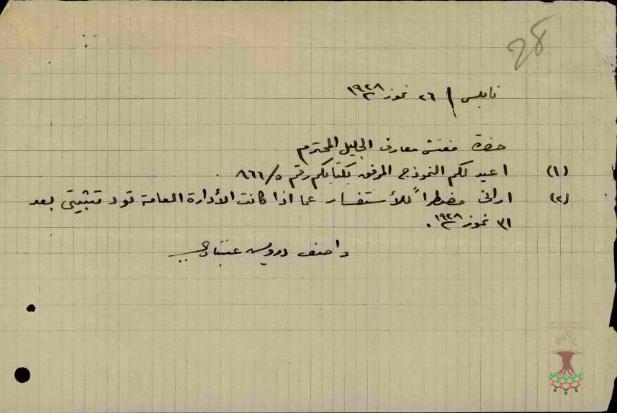 28
نابلس / ٢٦ تموز ١٩٢٨
حضرة مفتش معارف الجليل المحترم
(١) اعيد لكم النموذج المرفق بكتابكم رقم ٨٦٦/٥.
(٢) اراني مضطراً للأستفسار عما اذا كانت الأدارة العامة تود تثبيتي بعد
٣١ تموز ١٩٢٨.
واصف درويش